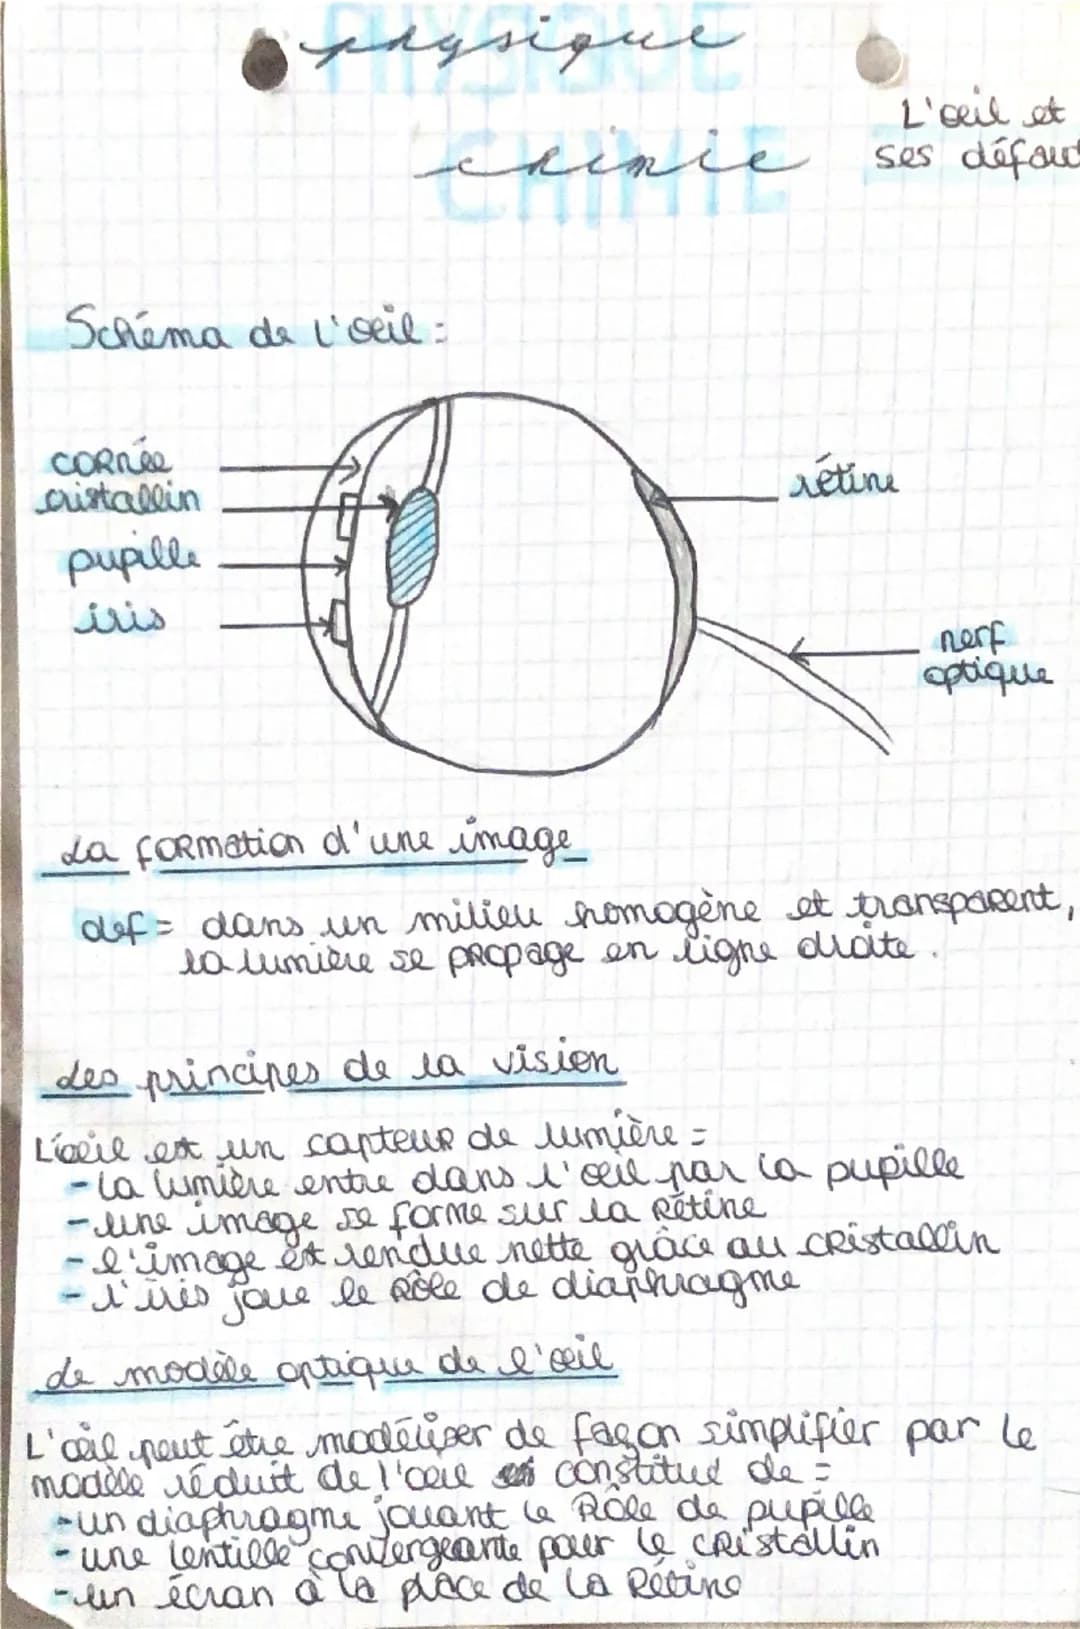 physique
PHYSIQUE
chimie
CHIMIE
L'œil et
ses défaut
Schéma de l'œil :
cornée
cristallin
pupille
iris
rétine
nerf
optique
La formation d'une image
def = dans un milieu homogène et transparent,
la lumière se propage en ligne droite.
Les principes de la vision
L'œil est un capteur de lumière =
- la lumière entre dans l'œil par la pupille
- une image se forme sur la rétine
- l'image est rendue nette grâce au cristallin
- l'iris joue le rôle de diaphragme
Le modèle optique de l'œil
L'œil peut être modéliser de façon simplifier par le
modèle réduit de l'œil constitué de =
- un diaphragme jouant le rôle de pupille
- une lentille convergeante pour le cristallin
- un écran à la place de la rétine